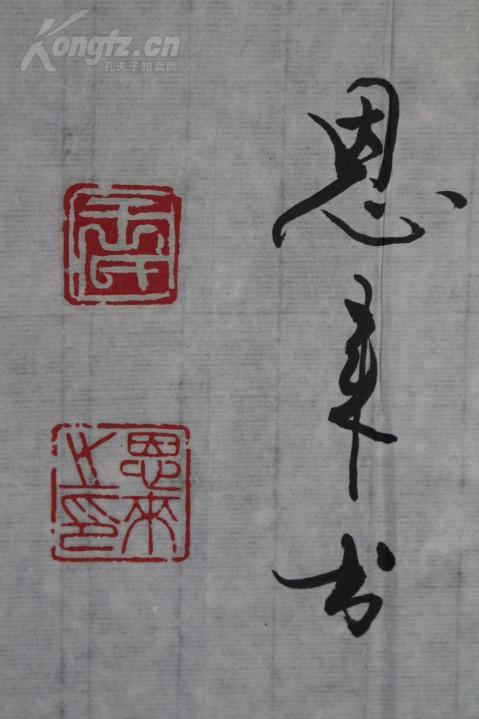 Kongfz.cn
孔夫子拍卖网
恩来书
恩来之印